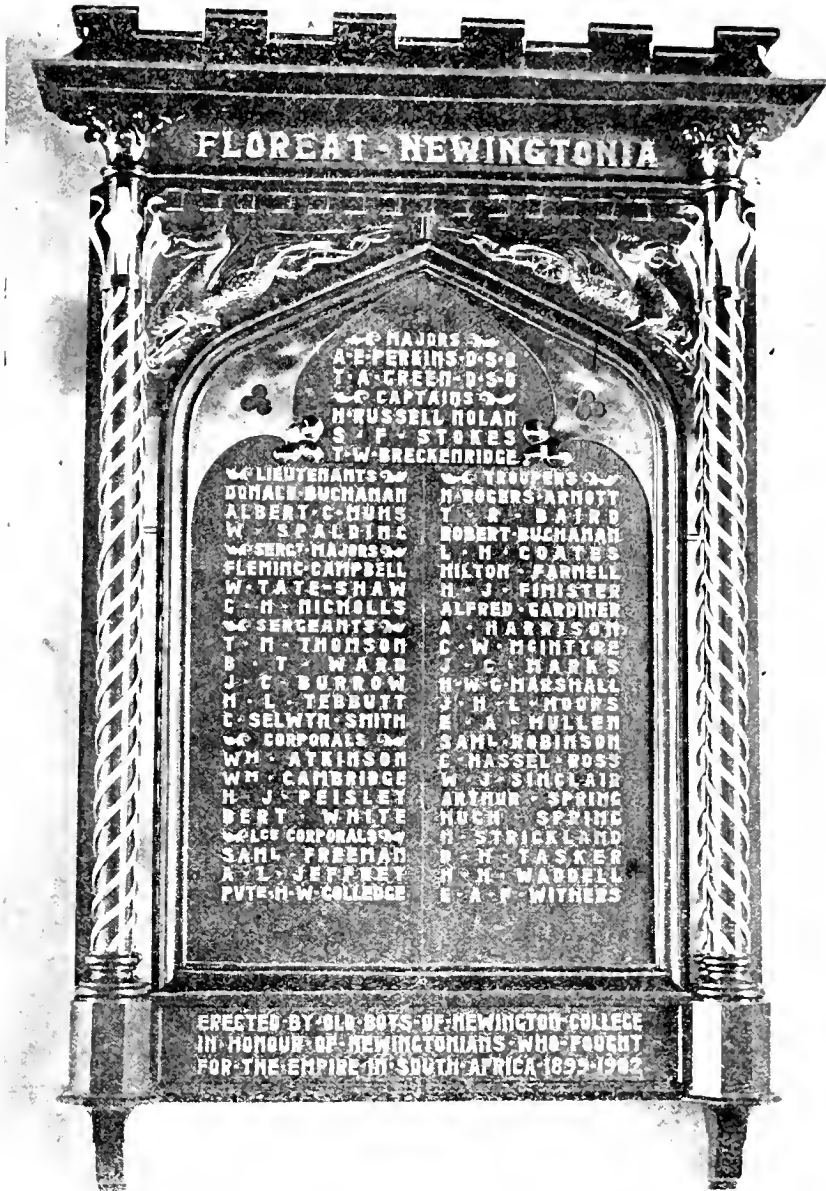 FLOREAT - NEWINGTONIA
MAJORS
A·E·PERKINS·D·S·O
T·A·GREEN·D·S·O
CAPTAINS
H·RUSSELL NOLAN
S·F·STOKES
T·W·BRECKENRIDGE
LIEUTENANTS
DONALD·BUCHANAN
ALBERT·C·MUMS
W·SPALDING
SERGT·MAJORS
FLEMING·CAMPBELL
W·TATE-SHAW
G·H·NICHOLLS
SERGEANTS
T·M·THOMSON
B·T·WARD
J·C·BURROW
H·L·TEBBUTT
C·SELWYN·SMITH
CORPORALS
WM·ATKINSON
WM·CAMBRIDGE
H·J·PEISLEY
BERT·WHITE
LCE CORPORALS
SAML·FREEMAN
A·L·JEFFREY
PVTE·H·W·COLLEDGE
TROUPERS
H·ROGERS·ARNOTT
T·R·BAIRD
ROBERT·BUCHANAN
L·H·COATES
MILTON·FARNELL
H·J·FINISTER
ALFRED·GARDINER
A·HARRISON
C·W·MCINTYRE
J·C·MARKS
H·W·G·MARSHALL
J·H·L·MOORS
E·A·MULLEN
SAML·ROBINSON
HASSEL·ROSS
W·J·SINCLAIR
ARTHUR·SPRING
HUGH·SPRING
H·STRICKLAND
H·TASKER
H·H·WADDELL
E·A·F·WITHERS
ERECTED·BY·OLD·BOYS·OF·NEWINGTON·COLLEGE
IN·HONOUR·OF·NEWINGTONIANS·WHO·FOUGHT
FOR·THE·EMPIRE·IN·SOUTH·AFRICA·1899-1902